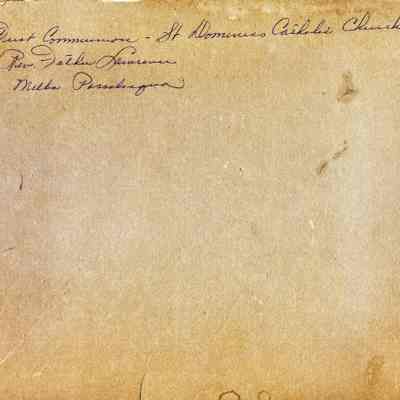 First Communion - St Dominics Catholic Church
Rev. Father Lawrence
Melba